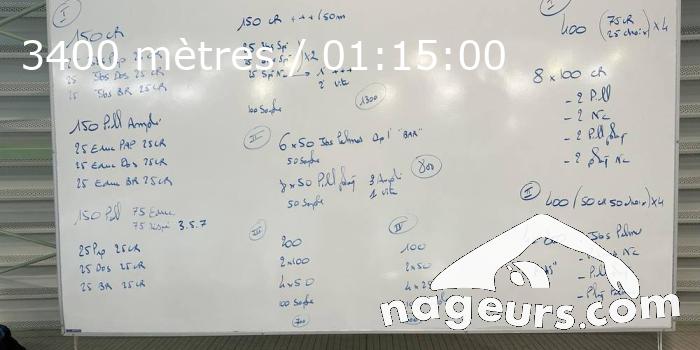 I
150 CR
3400 mètres / 01:15:00
25 Jbs Dos 25 CR
25 Jbs BR 25 CR
150 Pull Ampli
25 Educ PAP 25 CR
25 Educ Dos 25 CR
25 Educ BR 25 CR
150 Pull 75 Educ
75 Respi 3.5.7
25 Pap 25 CR
25 Dos 25 CR
25 BR 25 CR
150 CR +++/50m
x2
2 vite
100 Souple
1300
II
6 x 50 Jbs Palmes "BAR"
50 Souple
50 Pull plaq 3 Ampli
1 vite
50 Souple
800
III
200
2 x 100
4 x 50
100 Souple
700
IV
100
2 x 50
4 x 25
I
400 (75 CR
25 choix) x 4
8 x 100 CR
- 2 Pull
- 2 NC
- 2 Pull plaq
- 2 plaq NC
II
400 (50 CR 50 choix) x 4
- Jbs Palmes
NC
- Pull
- Plaq
nageurs.com